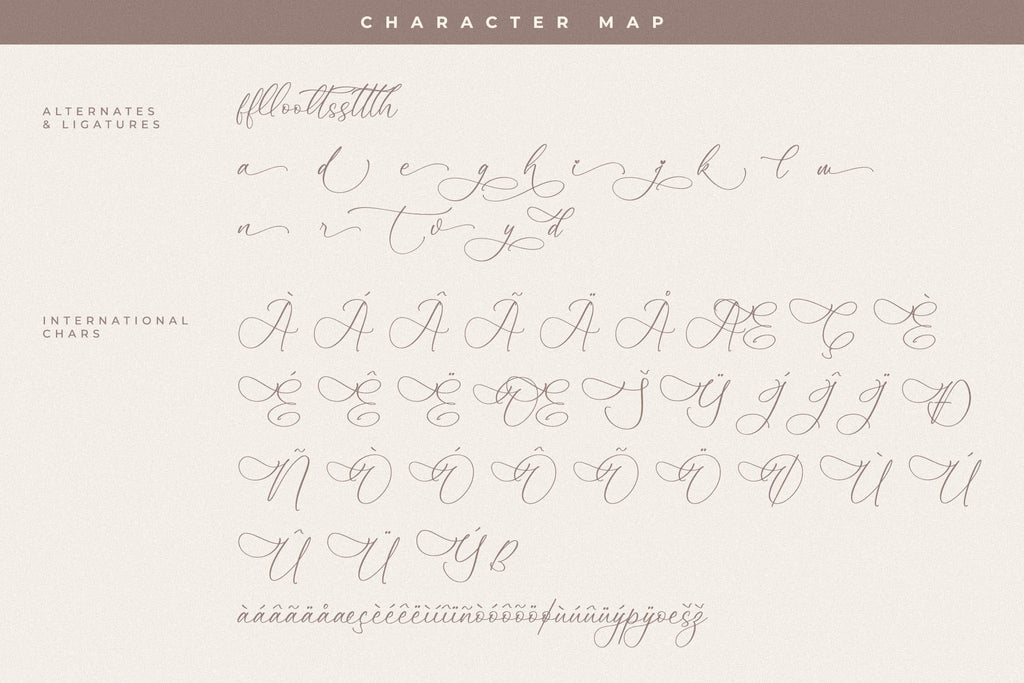 CHARACTER MAP
ALTERNATES
& LIGATURES
fflloottssttth
a d e g h i j k l m
n r t o y d
INTERNATIONAL
CHARS
À Á Â Ã Ä Å Æ Ç È
É Ê Ë Œ Š Ÿ Ǵ Ĝ G̈ Ð
Ñ Ò Ó Ô Õ Ö Ø Ù Ú
Û Ü Ý ß
àáâãäåæçèéêëìíîïñòóôõöøùúûüýþÿœšž